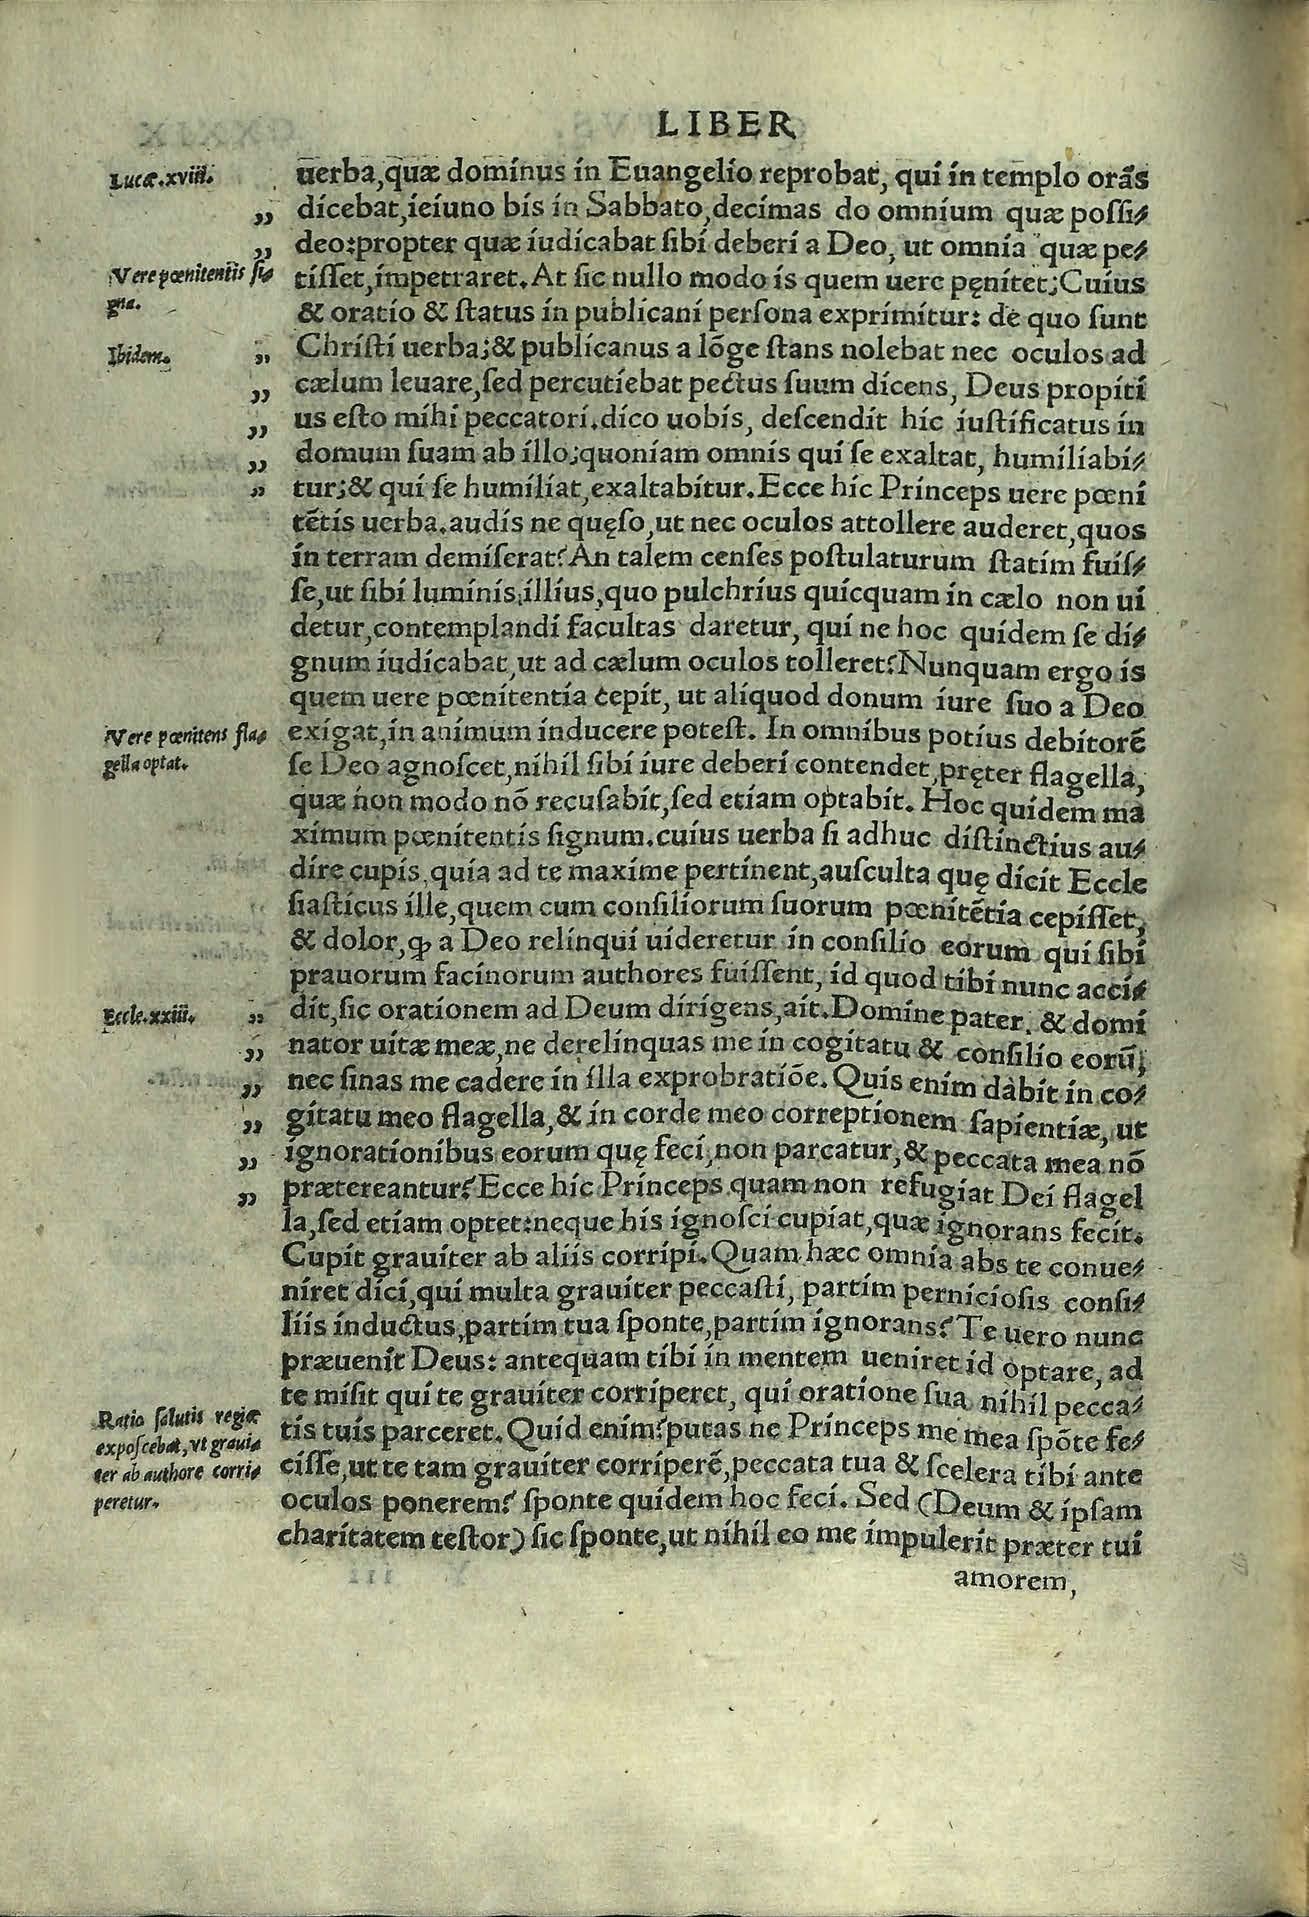 LIBER
Lucæ.xviii.
uerba,quæ dominus in Euangelio reprobat, qui in templo orãs
dicebat,ieiuno bis in Sabbato,decimas do omnium quæ poſſi-
deo:propter quæ iudicabat ſibi deberi a Deo, ut omnia quæ pe-
Vere pœnitentis ſi-
gna.
tiſſet,impetraret.At ſic nullo modo is quem uere pęnitet;Cuius
& oratio & ſtatus in publicani perſona exprimitur: de quo ſunt
Ibidem.
Chriſti uerba;& publicanus a lõge ſtans nolebat nec oculos ad
cælum leuare,ſed percutiebat pectus ſuum dicens, Deus propiti
us eſto mihi peccatori.dico uobis, deſcendit hic iuſtificatus in
domum ſuam ab illo;quoniam omnis qui ſe exaltat, humiliabi-
tur;& qui ſe humiliat,exaltabitur.Ecce hic Princeps uere pœni
tẽtis uerba.audis ne quęſo,ut nec oculos attollere auderet,quos
in terram demiſerat?An talem cenſes poſtulaturum ſtatim fuiſ-
ſe,ut ſibi luminis illius,quo pulchrius quicquam in cælo non ui
detur,contemplandi facultas daretur, qui ne hoc quidem ſe di-
gnum iudicabat,ut ad cælum oculos tolleret?Nunquam ergo is
quem uere pœnitentia cepit, ut aliquod donum iure ſuo a Deo
Vere pœnitens fla-
gella optat.
exigat,in animum inducere poteſt. In omnibus potius debitorẽ
ſe Deo agnoſcet,nihil ſibi iure deberi contendet,pręter flagella,
quæ non modo nõ recuſabit,ſed etiam optabit. Hoc quidem ma
ximum pœnitentis ſignum.cuius uerba ſi adhuc diſtinctius au-
dire cupis,quia ad te maxime pertinent,auſculta quę dicit Eccle
ſiaſticus ille,quem cum conſiliorum ſuorum pœnitẽtia cepiſſet,
& dolor,ꝙ a Deo relinqui uideretur in conſilio eorum qui ſibi
prauorum facinorum authores fuiſſent, id quod tibi nunc acci-
Eccle.xxiii.
dit,ſic orationem ad Deum dirigens,ait.Domine pater, & domi
nator uitæ meæ,ne derelinquas me in cogitatu & conſilio eorũ;
nec ſinas me cadere in illa exprobratiõe.Quis enim dabit in co-
gitatu meo flagella,& in corde meo correptionem ſapientiæ, ut
ignorationibus eorum quę feci,non parcatur,& peccata mea nõ
prætereantur?Ecce hic Princeps quam non refugiat Dei flagel
la,ſed etiam optet:neque his ignoſci cupiat,quæ ignorans fecit.
Cupit grauiter ab aliis corripi.Quam hæc omnia abs te conue-
niret dici,qui multa grauiter peccaſti, partim pernicioſis conſi-
liis inductus,partim tua ſponte,partim ignorans?Te uero nunc
præuenit Deus: antequam tibi in mentem ueniret id optare, ad
te miſit qui te grauiter corriperet, qui oratione ſua nihil pecca-
Ratio ſalutis regiæ
expoſcebat,vt graui-
ter ab authore corri-
peretur.
tis tuis parceret.Quid enim?putas ne Princeps me mea ſpõte fe-
ciſſe,ut te tam grauiter corriperẽ,peccata tua & ſcelera tibi ante
oculos ponerem? ſponte quidem hoc feci. Sed (Deum & ipſam
charitatem teſtor) ſic ſponte,ut nihil eo me impulerit præter tui
amorem,